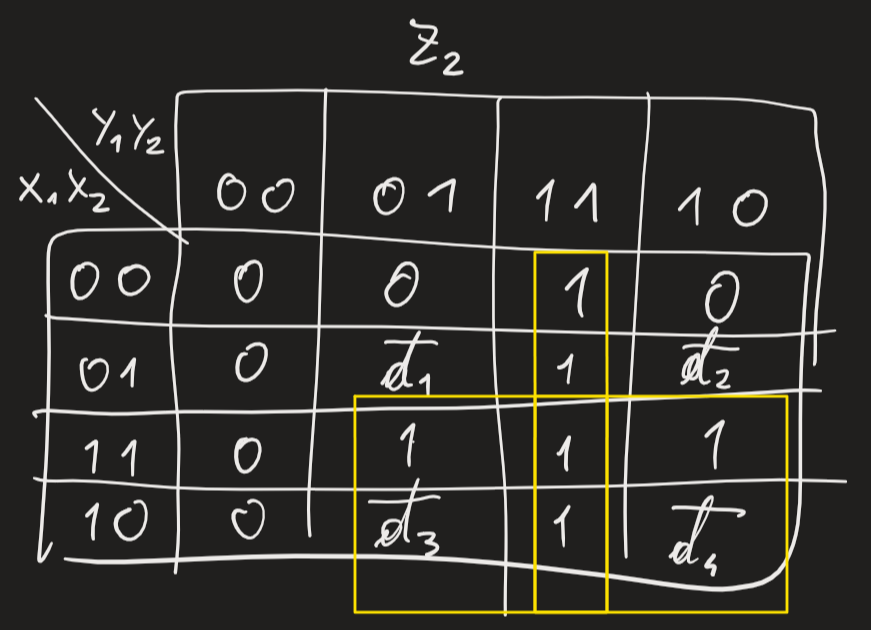 Z₂
Y₁Y₂
X₁X₂ 00 01 11 10
00 0 0 1 0
01 0 d̅₁ 1 d̅₂
11 0 1 1 1
10 0 d̅₃ 1 d̅₄